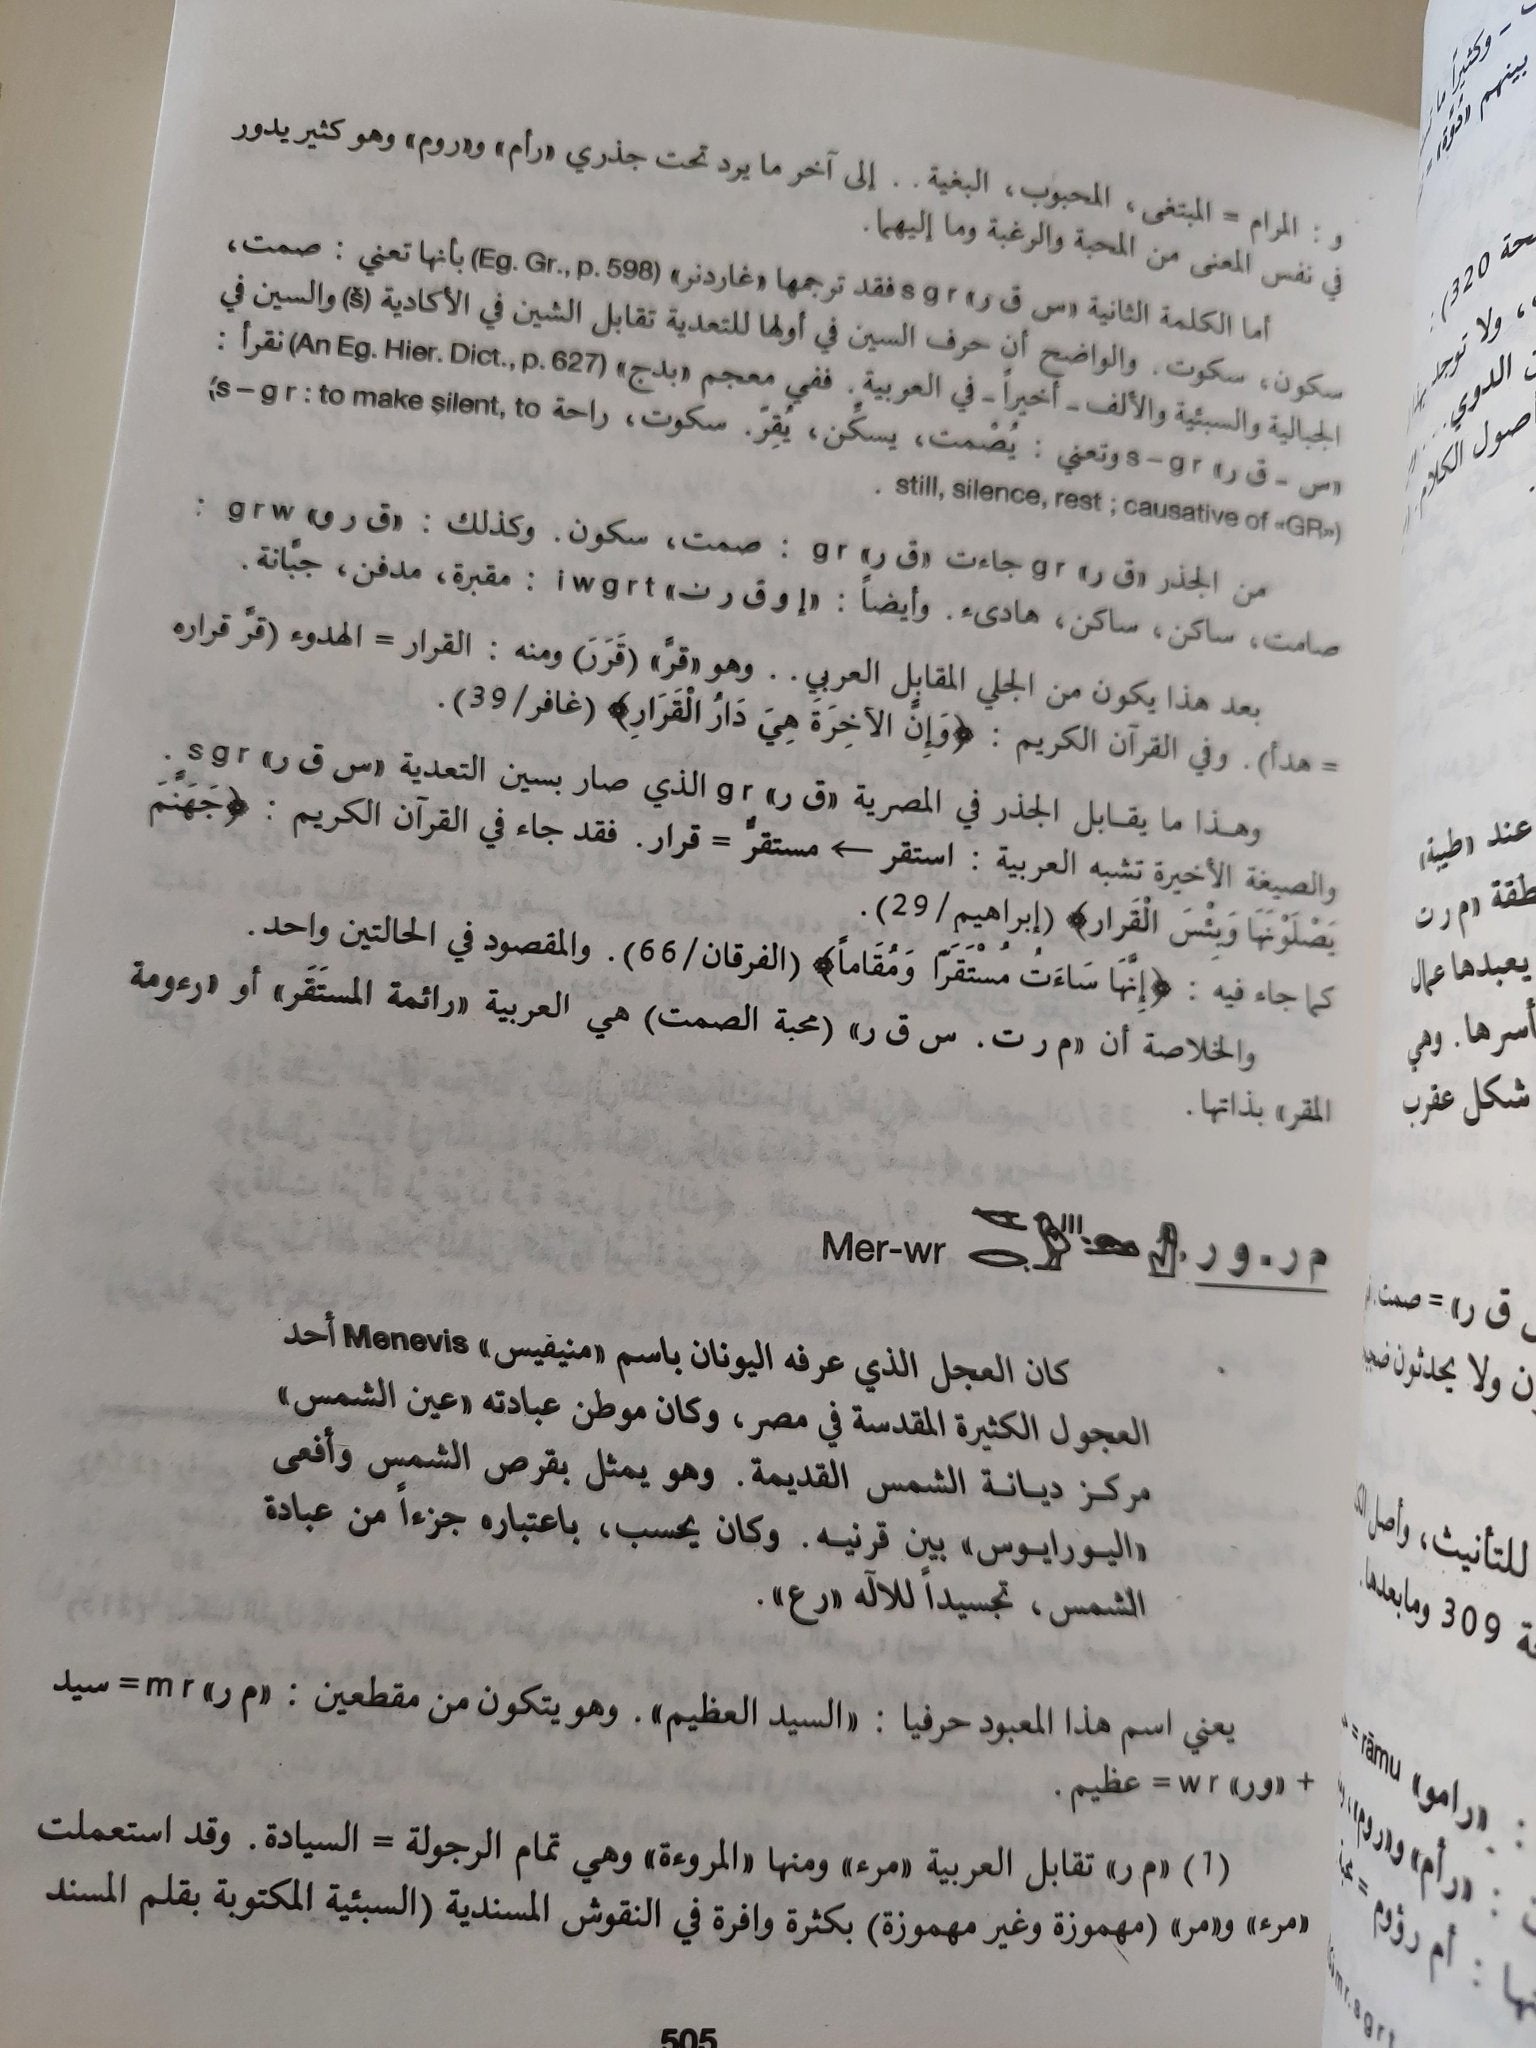 و : المرام = المبتغى، المحبوب، البغية . . إلى آخر ما يرد تحت جذري «رأم» و«روم» وهو كثير يدور
في نفس المعنى من المحبة والرغبة وما إليهما.
أما الكلمة الثانية «س ق ر» s g r فقد ترجمها «غاردنر» (Eg. Gr., p. 598) بأنها تعني : صمت،
سكون، سكوت. والواضح أن حرف السين في أولها للتعدية تقابل الشين في الأكادية (š) والسين في
الجبالية والسبئية والألف ـ أخيراً ـ في العربية. ففي معجم «بدج» (An Eg. Hier. Dict., p. 627) نقرأ :
«س - ق ر» s – g r وتعني : يُصْمت، يسكِّن، يُقِرّ. سكوت، راحة s – g r : to make silent, to
still, silence, rest ; causative of «GR») .
من الجذر «ق ر» g r جاءت «ق ر» g r : صمت، سكون. وكذلك : «ق ر و» g r w :
صامت، ساكن، ساكن، هادىء. وأيضاً : «إ و ق ر ت» i w g r t : مقبرة، مدفن، جبَّانة.
بعد هذا يكون من الجلي المقابل العربي. . وهو «قرَّ» (قَرَرَ) ومنه : القرار = الهدوء (قرَّ قراره
= هدأ). وفي القرآن الكريم : ﴿وَإِنَّ الآخِرَةَ هِيَ دَارُ الْقَرَارِ﴾ (غافر/39).
وهـذا ما يقـابل الجذر في المصرية «ق ر» g r الذي صار بسين التعدية «س ق ر» s g r .
والصيغة الأخيرة تشبه العربية : استقر ← مستقرٌّ = قرار. فقد جاء في القرآن الكريم : ﴿جَهَنَّمَ
يَصْلَوْنَهَا وَبِئْسَ الْقَرار﴾ (إبراهيم/29).
كما جاء فيه : ﴿إِنَّهَا سَاءَتْ مُسْتَقَرّاً وَمُقَاماً﴾ (الفرقان/66). والمقصود في الحالتين واحد.
والخلاصة أن «م ر ت. س ق ر» (محبة الصمت) هي العربية «رائمة المستَقَر» أو «رءومة
المقر» بذاتها.
م ر. و ر Mer-wr
كان العجل الذي عرفه اليونان باسم «منيفيس» Menevis أحد
العجول الكثيرة المقدسة في مصر، وكان موطن عبادته «عين الشمس»
مركـز ديـانـة الشمس القديمة. وهو يمثل بقرص الشمس وأفعى
«اليـورايـوس» بين قرنيـه. وكان يحسب، باعتباره جزءاً من عبادة
الشمس، تجسيداً للالٓه «رع».
يعني اسم هذا المعبود حرفيا : «السيد العظيم». وهو يتكون من مقطعين : «م ر» m r = سيد
+ «ور» w r = عظيم.
(1) «م ر» تقابل العربية «مرء» ومنها «المروءة» وهي تمام الرجولة = السيادة. وقد استعملت
«مرء» و«مر» (مهموزة وغير مهموزة) بكثرة وافرة في النقوش المسندية (السبئية المكتوبة بقلم المسند
505
حة 320) :
، ولا توجد
الدوي.
أصول الكلام
عند «طيبة»
طقة «م ر ت
يعبدها عمال
أسرها. وهي
شكل عقرب
ق ر» = صمت
ن ولا يحدثون
للتأنيث، وأصل
حة 309 ومابعدها.
: «رامو» rāmu =
: «رأم» و«روم»،
ها : أم رؤوم =
mr.sgrt